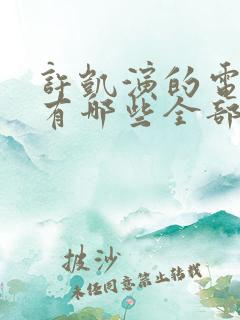 許凱演的電
有哪些全部
披沙
未經同意禁止轉載